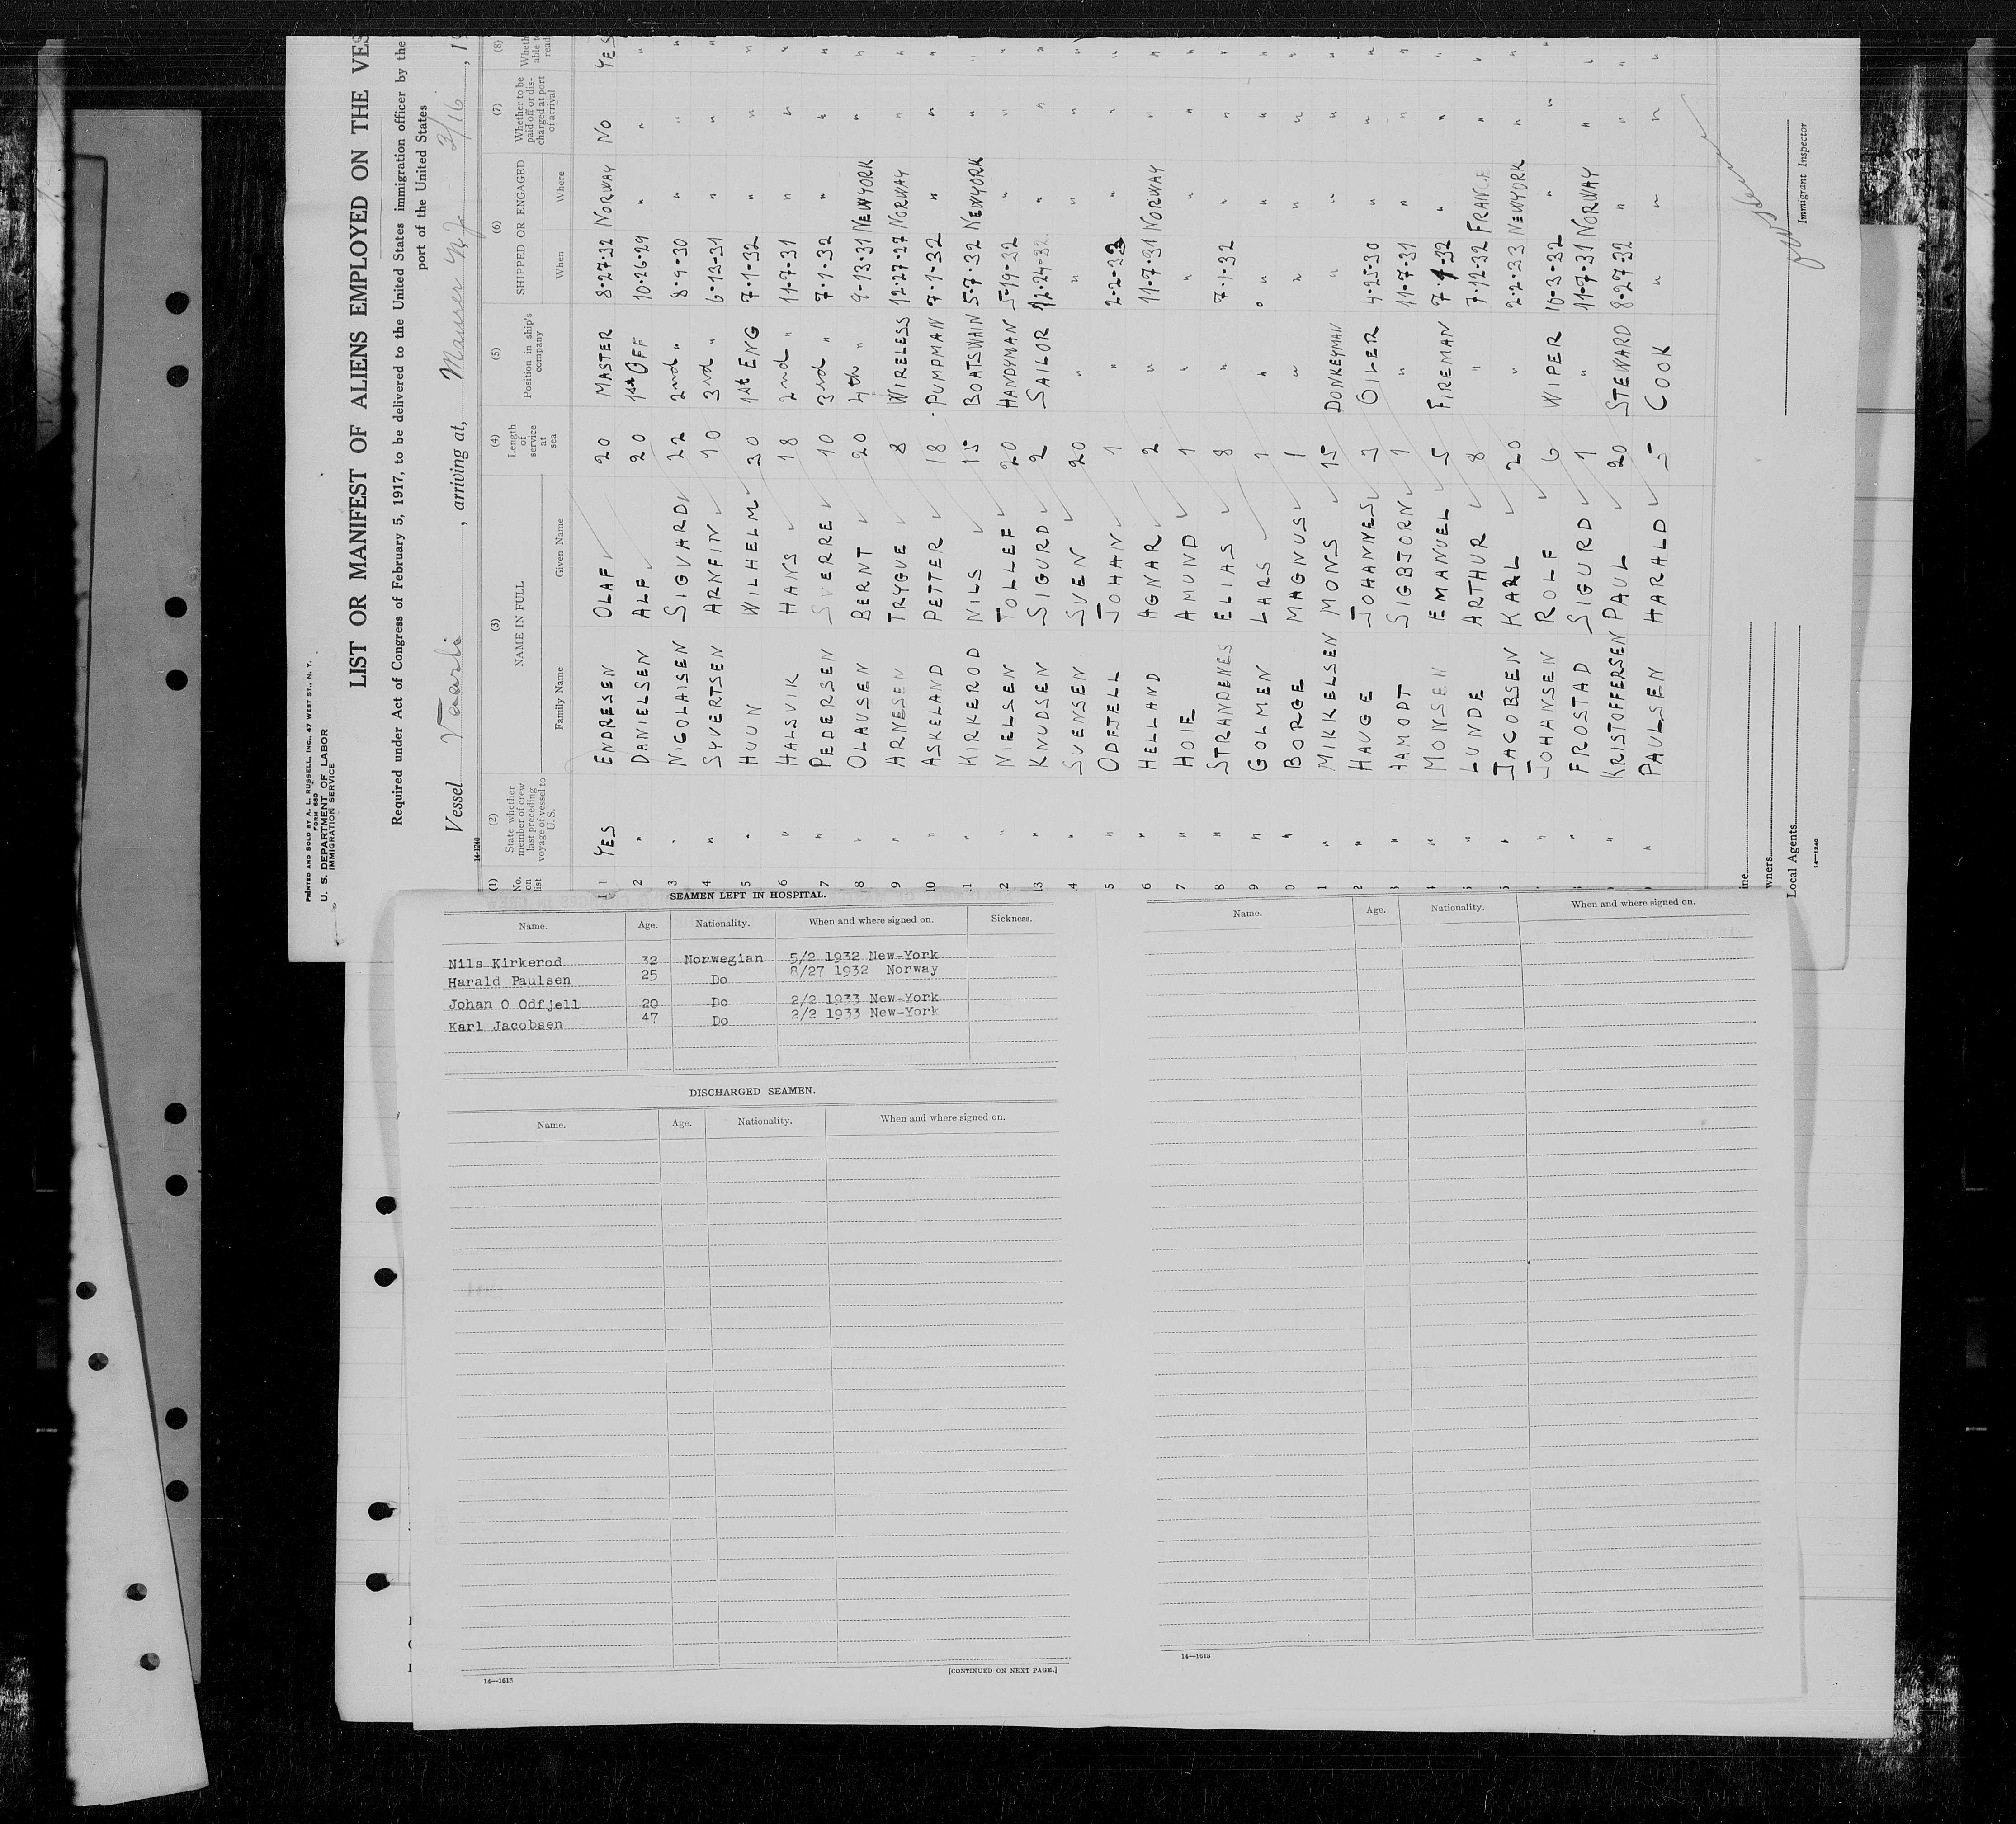 PRINTED AND SOLD BY A. L. RUSSELL, INC., 47 WEST ST., N. Y.
FORM 680
U. S. DEPARTMENT OF LABOR
IMMIGRATION SERVICE
LIST OR MANIFEST OF ALIENS EMPLOYED ON THE VES
Required under Act of Congress of February 5, 1917, to be delivered to the United States immigration officer by the
port of the United States
Vessel Vaarli, arriving at, Maurer N.J. 2/16, 19
14-1240
(1) (2) (3) (4) (5) (6) (7) (8)
No. on list State whether member of crew last preceding voyage of vessel to U. S. NAME IN FULL Length of service at sea Position in ship's company SHIPPED OR ENGAGED Whether to be paid off or discharged at port of arrival Wheth able to read
Family Name Given Name When Where
1 YES ENDRESEN OLAF 20 MASTER 8-27-32 NORWAY NO YES
2 " DANIELSEN ALF 20 1st OFF 10-26-29 " " "
3 " NICOLAISEN SIGVARD 22 2nd " 8-9-30 " " "
4 " SYVERTSEN ARNFIN 10 3rd " 6-13-31 " " "
5 " HUUN WILHELM 30 1st ENG 7-1-32 " " "
6 " HALSVIK HANS 18 2nd " 11-7-31 " " "
7 " PEDERSEN SVERRE 10 3rd " 7-1-32 " " "
8 " OLAUSEN BERNT 20 4th " 9-13-31 NEWYORK " "
9 " ARNESEN TRYGVE 8 WIRELESS 12-27-27 NORWAY " "
10 " ASKELAND PETTER 18 PUMPMAN 7-1-32 " " "
11 " KIRKEROD NILS 15 BOATSWAIN 5-7-32 NEWYORK " "
2 " NIELSEN TOLLEF 20 HANDYMAN 5-19-32 " " "
13 " KNUDSEN SIGURD 2 SAILOR 12-24-32 " " "
4 " SVENSEN SVEN 20 " " " " "
5 " ODFJELL JOHAN 1 " 2-2-33 " " "
6 " HELLAND AGNAR 2 " 11-7-31 NORWAY " "
7 " HOIE AMUND 1 " " " " "
8 " STRANDENES ELIAS 8 " 7-1-32 " " "
9 " GOLMEN LARS 1 " " " " "
0 " BORGE MAGNUS 1 " " " " "
1 " MIKKELSEN MONS 15 DONKEYMAN " " " "
2 " HAUGE JOHANNES 3 OILER 4-25-30 " " "
3 " AAMODT SIGBJORN 1 " 11-7-31 " " "
4 " MONSEN EMANUEL 5 FIREMAN 7-1-32 " " "
5 " LUNDE ARTHUR 8 " 7-12-32 FRANCE " "
" JACOBSEN KARL 20 " 2-2-33 NEWYORK " "
" JOHANSEN ROLF 6 WIPER 10-3-32 " " "
" FROSTAD SIGURD 1 " 11-7-31 NORWAY " "
" KRISTOFFERSEN PAUL 20 STEWARD 8-27-32 " " "
" PAULSEN HARALD 5 COOK " " " "
ine
wners
Local Agents
Immigrant Inspector
14—1240
SEAMEN LEFT IN HOSPITAL.
Name. Age. Nationality. When and where signed on. Sickness.
Nils Kirkerod 32 Norwegian 5/2 1932 New-York
Harald Paulsen 25 Do 8/27 1932 Norway
Johan O Odfjell 20 Do 2/2 1933 New-York
Karl Jacobsen 47 Do 2/2 1933 New-York
DISCHARGED SEAMEN.
Name. Age. Nationality. When and where signed on.
14—1613
[CONTINUED ON NEXT PAGE.]
Name. Age. Nationality. When and where signed on.
14—1613